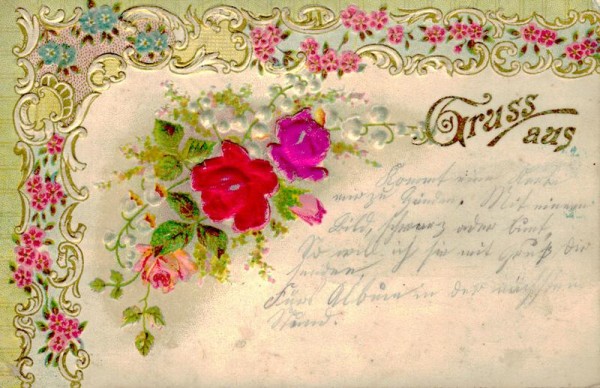 Gruss
aus
Kommt eine Karte
mir zu Händen. Mit einem
Bild, schwarz oder bunt,
So will ich sie mit Gruß dir
senden
Fürs Album in der nächsten
Stund.